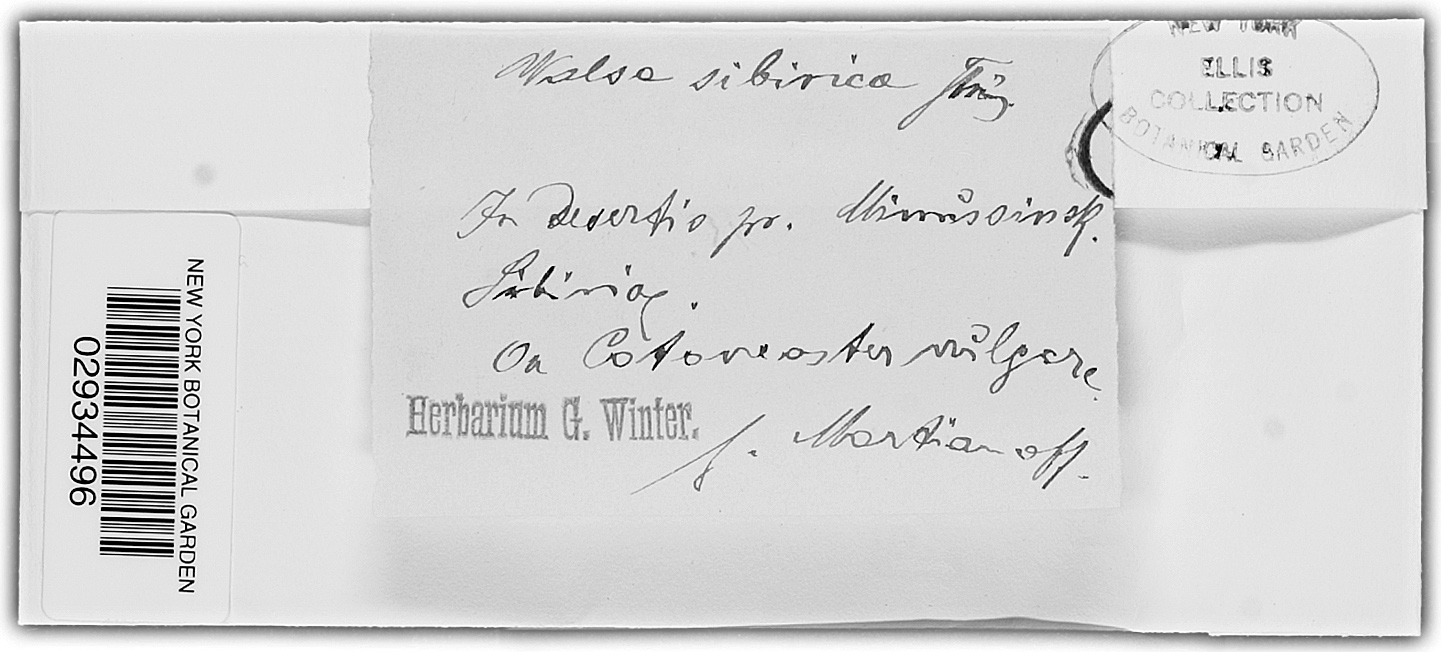 Valsa sibirica Thüm.
In Desertis pr. Minussinsk.
Sibiriae.
On Cotoneaster vulgare.
Herbarium G. Winter.
Martianoff.
NEW YORK
ELLIS
COLLECTION
BOTANICAL GARDEN
NEW YORK BOTANICAL GARDEN
02934496